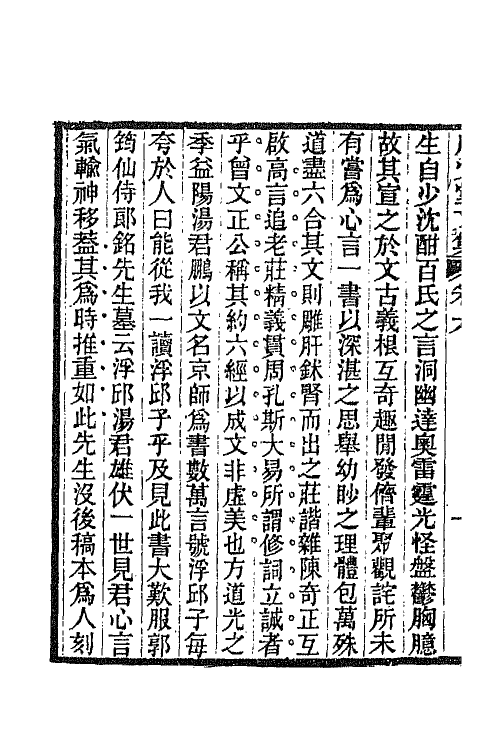 生自少沈酣百氏之言洞幽達奧雷霆光怪盤鬱胸臆
故其宣之於文古義根互奇趣閒發儕輩聚觀詫所未
有嘗爲心言一書以深湛之思舉幼眇之理體包萬殊
道盡六合其文則雕肝鉥腎而出之莊諧雜陳奇正互
啟高言追老莊精義貫周孔斯大易所謂修詞立誠者
乎曾文正公稱其約六經以成文非虛美也方道光之
季益陽湯君鵬以文名京師爲書數萬言號浮邱子每
夸於人曰能從我一讀浮邱子乎及見此書大歎服郭
筠仙侍郞銘先生墓云浮邱湯君雄伏一世見君心言
氣輸神移葢其爲時推重如此先生沒後稿本爲人刻